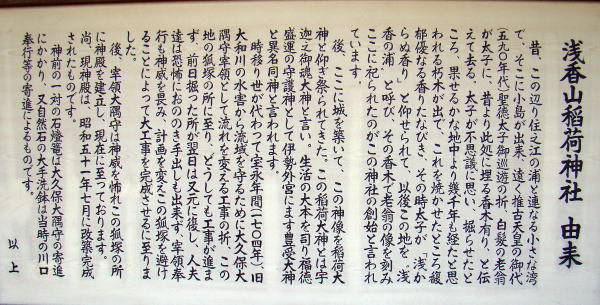 浅香山稲荷神社　由来
昔、この辺り住之江の浦と連なる小さな湾
で、そこに小島が出来、遠く推古天皇の御代
（五九〇年代）聖徳太子御巡遊の折、白髪の老翁
が太子に、昔より此処に埋る香木有り、と伝
えて去る。太子が不思議に思い、掘らせたと
ころ、果せるかな地中より幾千年も経たと思
われる朽木が出て、これを焼かせたところ馥
郁優なる香りたなびき、その時太子が、浅か
らぬ香り、と仰せられて、以後この地を、浅
香の浦、と呼び、その香木で老翁の像を刻み
ここに祀られたのがこの神社の創始と言われ
ています。
後、ここに城を築いて、この神像を稲荷大
神と仰ぎ祭られてきた。この稲荷大神とは宇
迦之御魂大神と言い、生活の大本を司り福徳
盛運の守護神として伊勢外宮にます豊受大神
と異名同神と言われます。
時移り世が代わって宝永年間（一七〇四年）、旧
大和川の水害から流域を守るために大久保大
隅守宰領として流れを変える工事の折、この
地の狐塚の所に至り、どうしても工事が進ま
ず、前日掘った所が翌日は又元に復し、人夫
達は恐怖におののき手出しも出来ず、宰領奉
行も神威を畏み、計画を変えこの狐塚を避け
ることによって大工事を完成させるに至りま
した。
後、宰領大隅守は神威を怖れこの狐塚の所
に神殿を建立し、現在に至っております。
尚、現神殿は、昭和五十一年七月に改築完成
されたものです。
神前の一対の石燈篭は大久保大隅守の寄進
にかかり、又自然石の大手洗鉢は当時の川口
奉行等の寄進によるものです。
以上